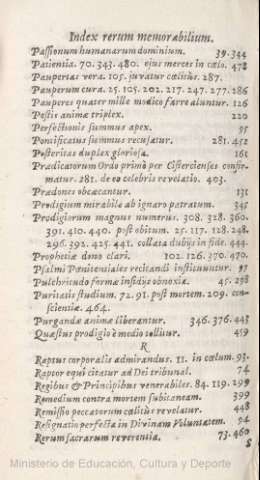 Index rerum memorabilium.
Passionum humanarum dominium. 39. 344
Patientia. 70. 343. 480. ejus merces in cœlo. 478
Paupertas vera. 105. juvatur cœlitùs. 287.
Pauperum cura. 25. 105. 202. 217. 247. 277. 286
Pauperes quater mille modico farre aluntur. 126
Pestis animæ triplex. 220
Perfectionis summus apex. 95
Pontificatus summus recusatur. 281. 452
Posteritas duplex gloriosa. 161
Prædicatorum Ordo primò per Cistercienses confir-
matur. 281. de eo celebris revelatio. 403.
Prædones obcæcantur. 131
Prodigium mirabile ab ignaro patratum. 345
Prodigiorum magnus numerus. 308. 328. 360.
391. 410. 440. post obitum. 25. 117. 128. 248.
296. 392. 425. 441. collata dubijs in fide. 444.
Prophetiæ dono clari. 102. 126. 370. 470.
Psalmi Pœnitentiales recitandi instituuntur. 97
Pulchritudo formæ insidijs obnoxia. 45. 298
Puritatis studium. 72. 91. post mortem. 209. con-
scientiæ. 464.
Purgandæ animæ liberantur. 346. 376. 443
Quæstus prodigio è medio tollitur. 459
R
Raptus corporalis admirandus. 11. in cœlum. 93.
Raptor equi citatur ad Dei tribunal. 74
Regibus & Principibus venerabiles. 84. 119. 299
Remedium contra mortem subitaneam. 399
Remissio peccatorum cœlitùs revelatur. 448
Resignatio perfecta in Divinam Voluntatem. 94
Rerum sacrarum reverentia. 73. 460
S
Ministerio de Educación, Cultura y Deporte